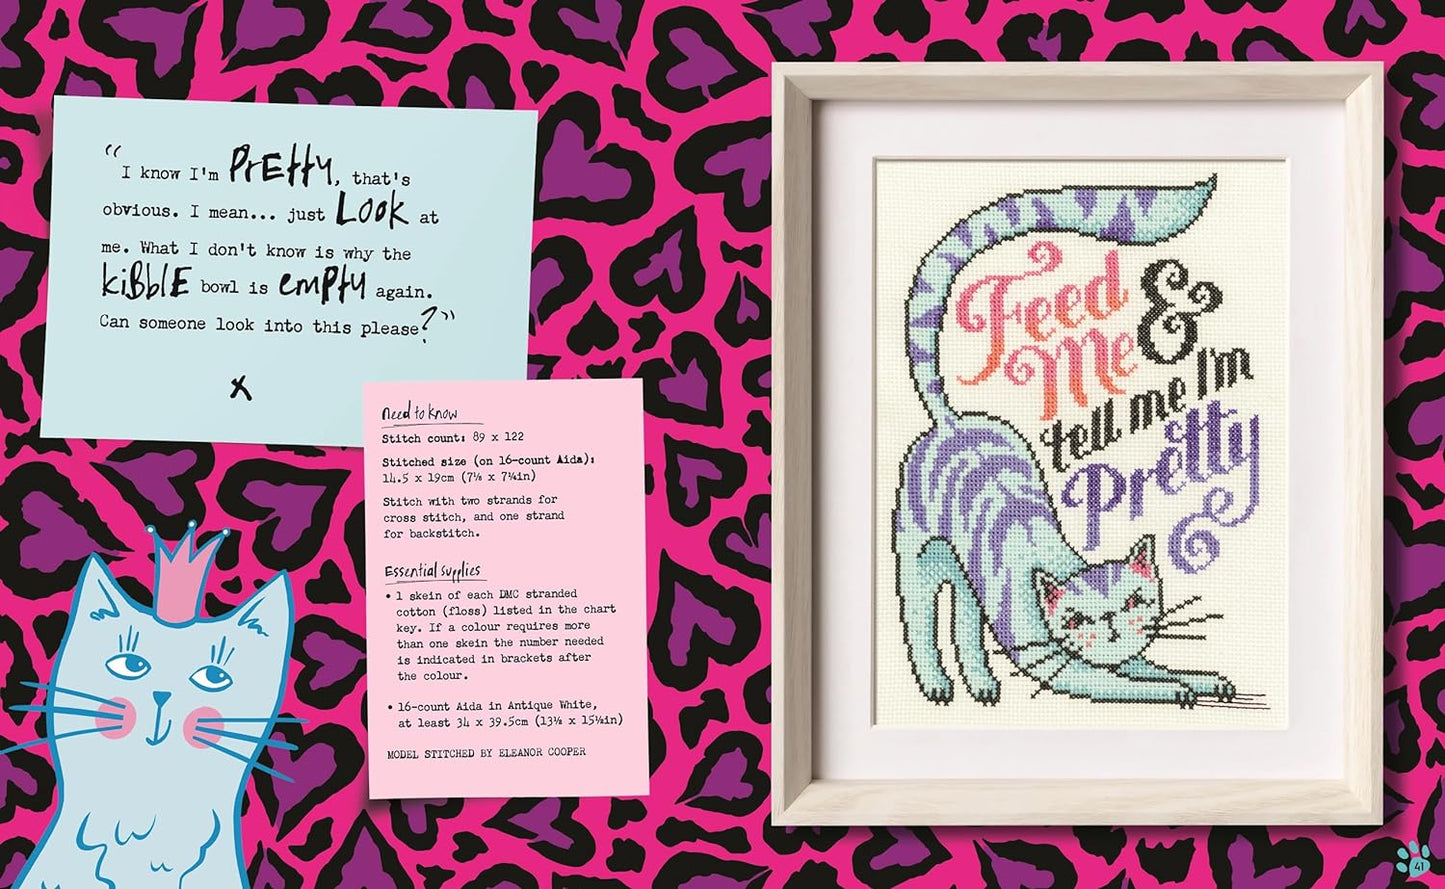 “I know I'm PrEttY, that's
obvious. I mean... just LOOK at
me. What I don't know is why the
kiBBlE bowl is EmptY again.
Can someone look into this please?”
x
Need to know
Stitch count: 89 x 122
Stitched size (on 16-count Aida):
14.5 x 19cm (7⅛ x 7¼in)
Stitch with two strands for
cross stitch, and one strand
for backstitch.
Essential supplies
• 1 skein of each DMC stranded
cotton (floss) listed in the chart
key. If a colour requires more
than one skein the number needed
is indicated in brackets after
the colour.
• 16-count Aida in Antique White,
at least 34 x 39.5cm (13½ x 15½in)
MODEL STITCHED BY ELEANOR COOPER
Feed
Me &
tell me I'm
Pretty
41